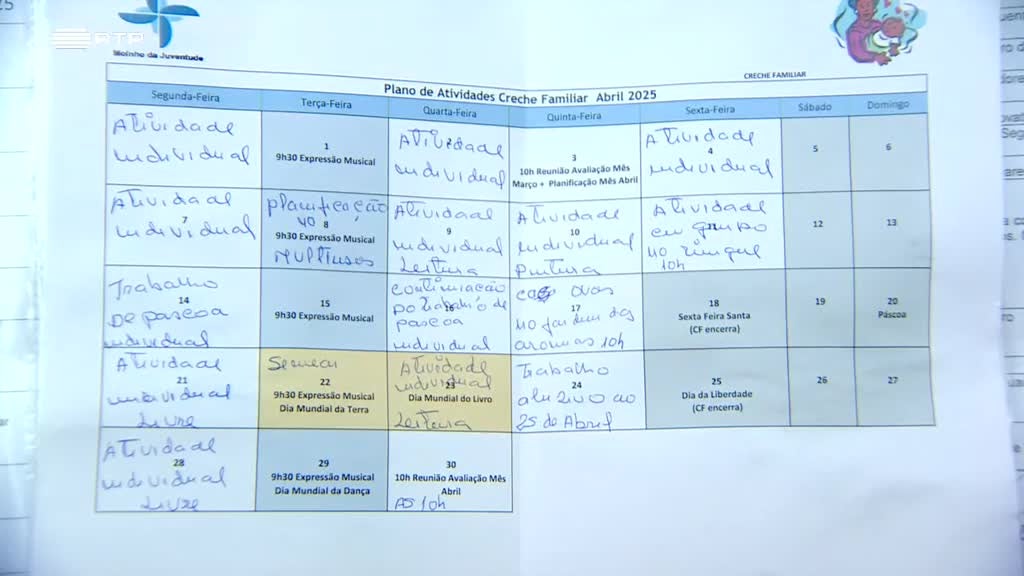 RTP
Moinho da Juventude
CRECHE FAMILIAR
Plano de Atividades Creche Familiar Abril 2025
Segunda-Feira
Terça-Feira
Quarta-Feira
Quinta-Feira
Sexta-Feira
Sábado
Domingo
Atividade
individual
1
9h30 Expressão Musical
Atividade
individual
3
10h Reunião Avaliação Mês
Março + Planificação Mês Abril
Atividade
4
individual
5
6
Atividade
7
individual
planificação
no 8
9h30 Expressão Musical
Multiusos
Atividade
9
individual
Leitura
Atividade
10
individual
pintura
Atividade
em grupo
no ringue
10h
12
13
Trabalho
14
De pascoa
individual
15
9h30 Expressão Musical
continuação
do trabalho de
16
pascoa
individual
ovos
17
no jardim das
aromas 10h
18
Sexta Feira Santa
(CF encerra)
19
20
Páscoa
Atividade
21
individual
Livre
Semear
22
9h30 Expressão Musical
Dia Mundial da Terra
Atividade
individual
23
Dia Mundial do Livro
Leitura
Trabalho
24
alusivo ao
25 de Abril
25
Dia da Liberdade
(CF encerra)
26
27
Atividade
28
individual
Livre
29
9h30 Expressão Musical
Dia Mundial da Dança
30
10h Reunião Avaliação Mês
Abril
As 10h